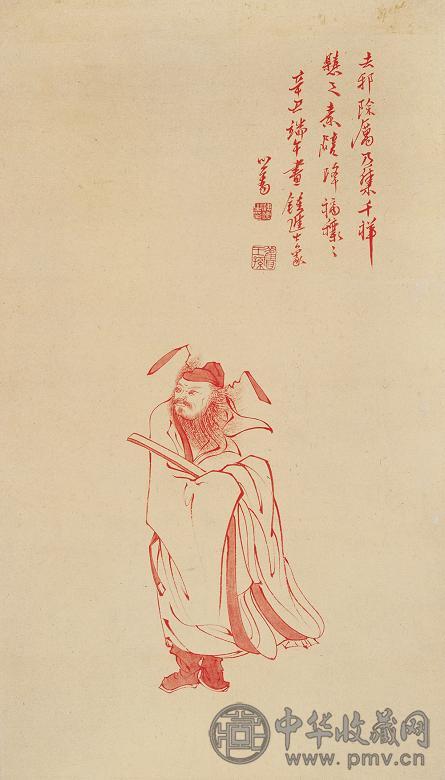 去邪除厲乃集千祥
懸之素壁降福穰〻
辛丑端午畫鍾進士象
心畬
中华收藏网
www.pmv.cn